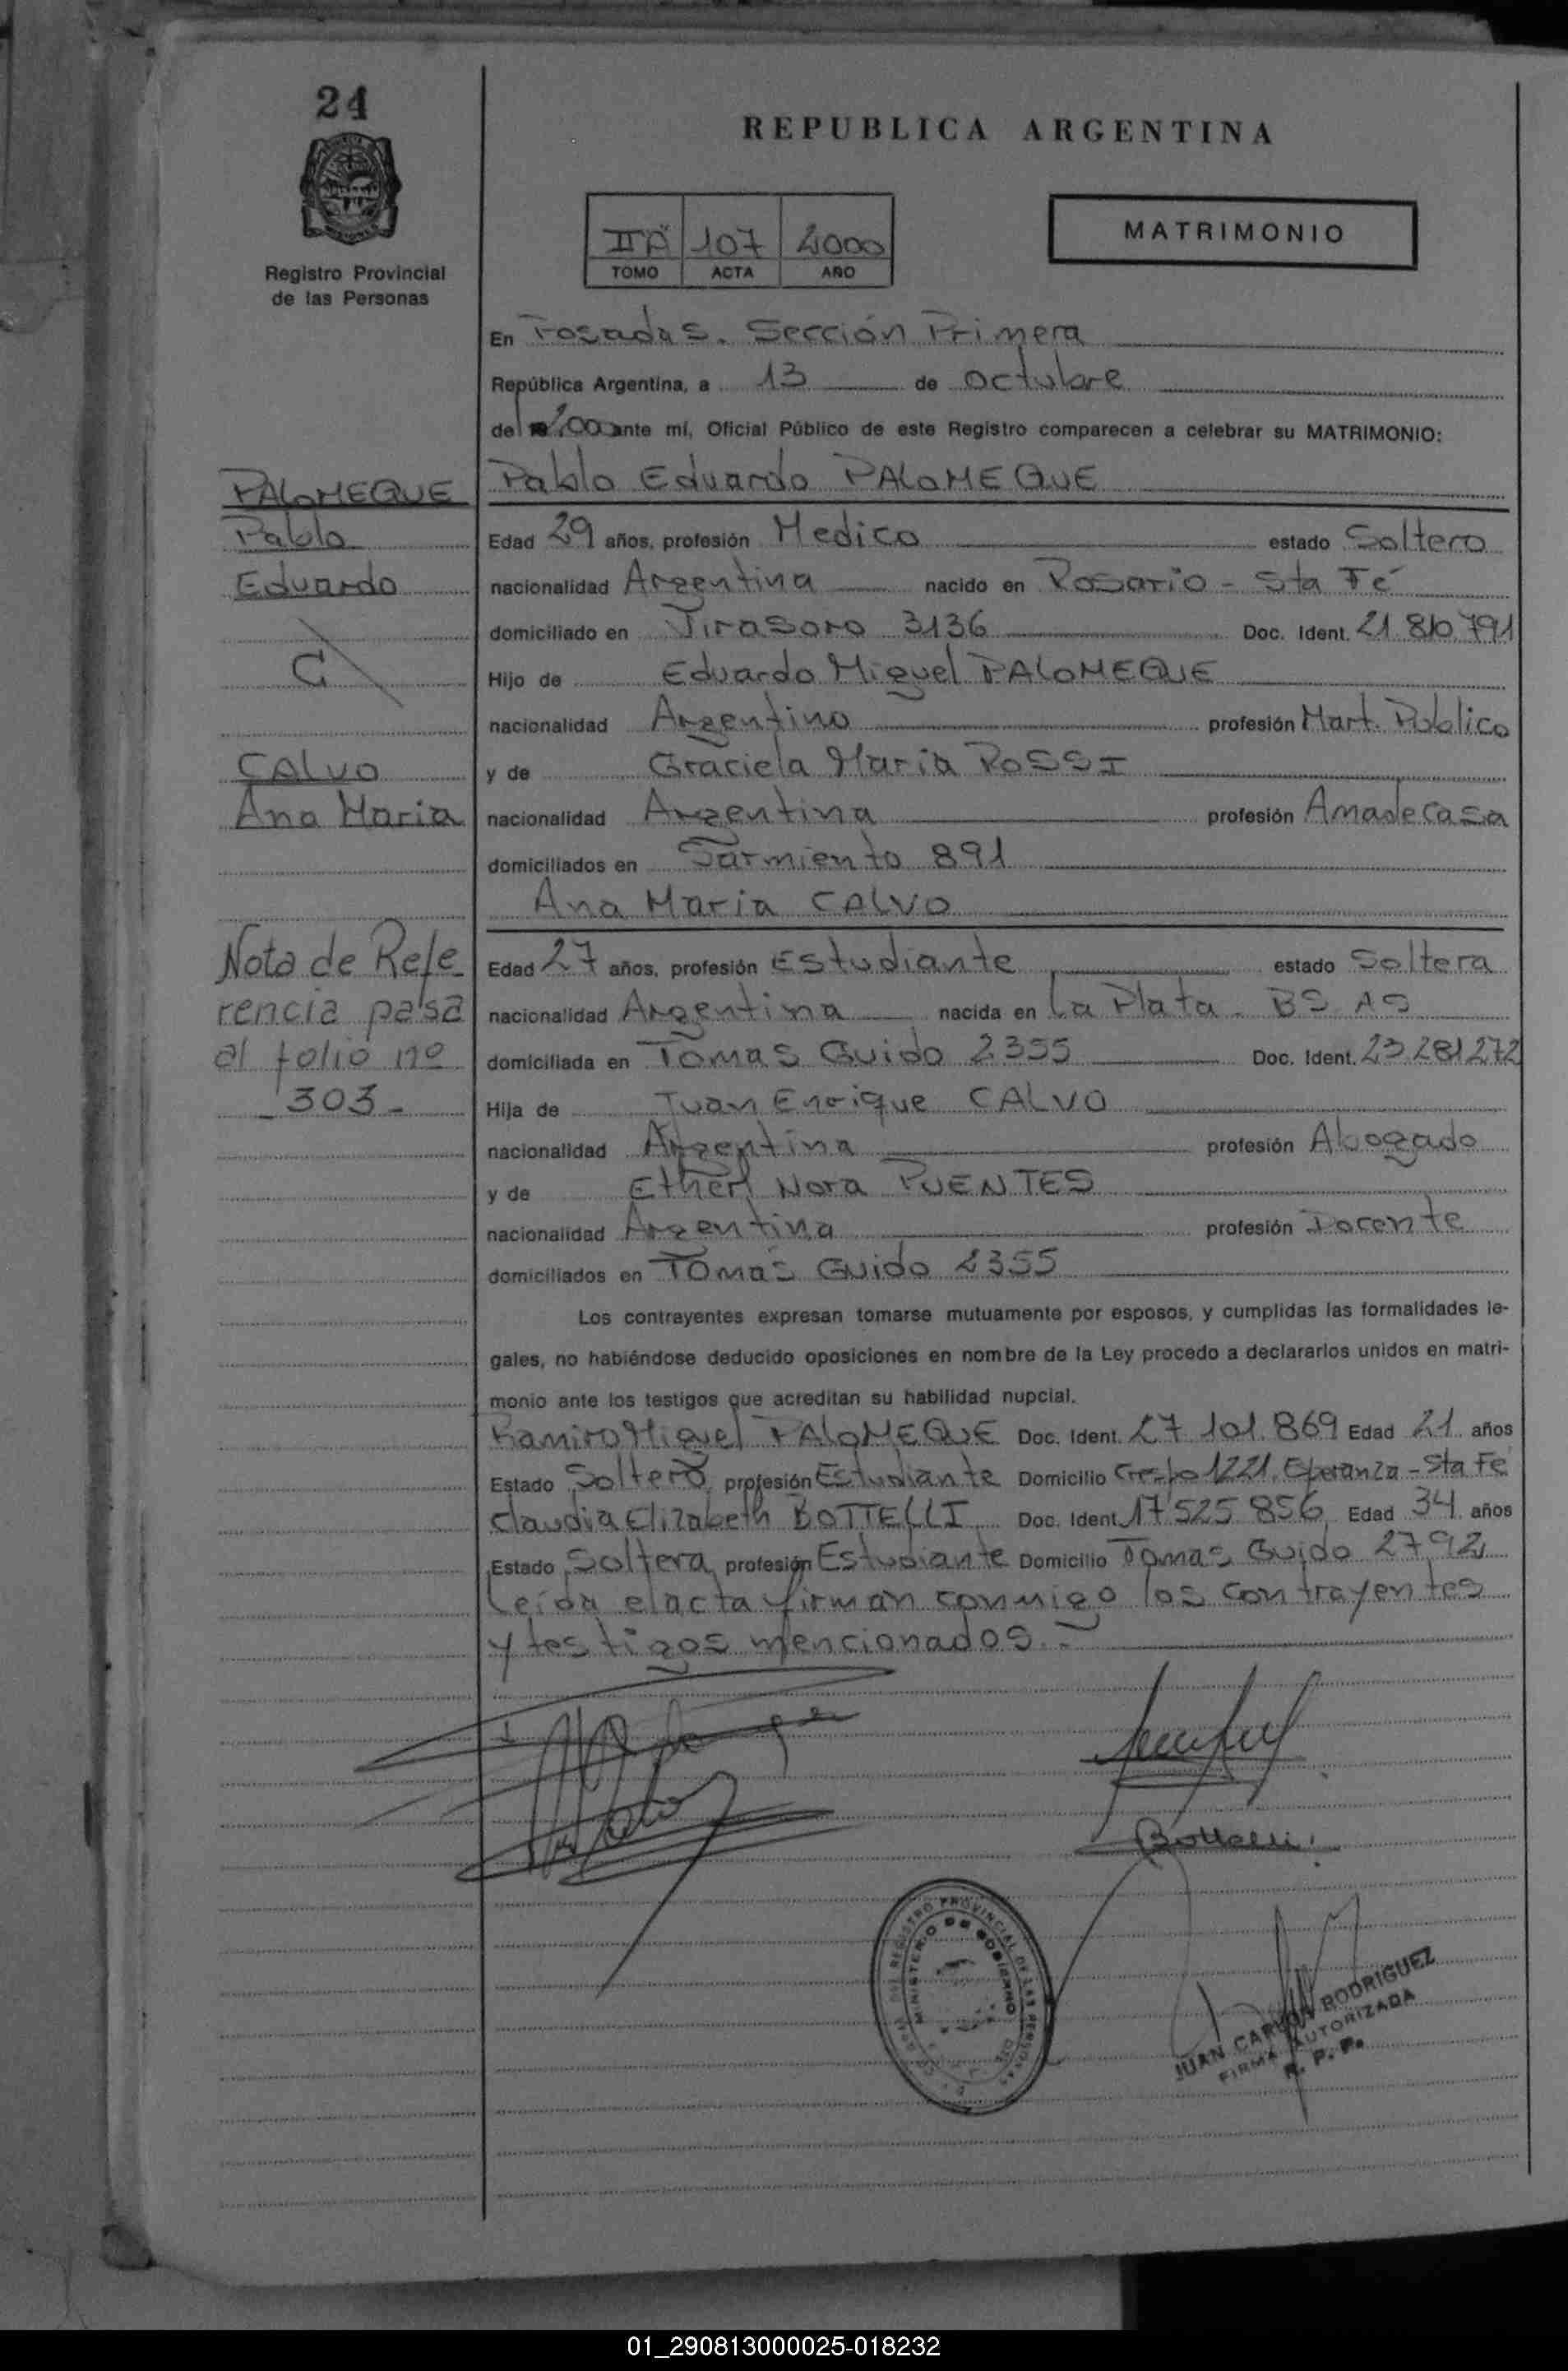 24
REPUBLICA ARGENTINA
Registro Provincial
de las Personas
IIA 107 2000
TOMO ACTA AÑO
MATRIMONIO
En Posadas. Sección Primera
República Argentina, a 13 de octubre
del 2.000 ante mí, Oficial Público de este Registro comparecen a celebrar su MATRIMONIO:
PALOMEQUE
Pablo
Eduardo
C
CALVO
Ana Maria
Nota de Refe
rencia pasa
al folio nº
_303_
Pablo Eduardo PALOMEQUE
Edad 29 años, profesión Medico estado Soltero
nacionalidad Argentina nacido en Rosario - Sta Fé
domiciliado en Virasoro 3136 Doc. Ident. 21.810.791
Hijo de Eduardo Miguel PALOMEQUE
nacionalidad Argentino profesión Mart. Publico
y de Graciela Maria ROSSI
nacionalidad Argentina profesión Ama de Casa
domiciliados en Sarmiento 891
Ana Maria CALVO
Edad 27 años, profesión Estudiante estado Soltera
nacionalidad Argentina nacida en La Plata - BS AS
domiciliada en Tomas Guido 2355 Doc. Ident. 23.281.272
Hija de Juan Enrique CALVO
nacionalidad Argentina profesión Abogado
y de Nora PUENTES
nacionalidad Argentina profesión Docente
domiciliados en Tomás Guido 2355
Los contrayentes expresan tomarse mutuamente por esposos, y cumplidas las formalidades le-
gales, no habiéndose deducido oposiciones en nombre de la Ley procedo a declararlos unidos en matri-
monio ante los testigos que acreditan su habilidad nupcial.
Ramiro Miguel PALOMEQUE Doc. Ident. 27.101.869 Edad 21 años
Estado Soltero profesión Estudiante Domicilio Crespo 1221, Esperanza - Sta Fé
Claudia Elizabeth BOTTELLI Doc. Ident. 17.525.856 Edad 34 años
Estado Soltera profesión Estudiante Domicilio Tomas Guido 2792
Leída el acta firman conmigo los contrayentes
y testigos mencionados.-
Bottelli
REGISTRO PROVINCIAL DE LAS PERSONAS
MINISTERIO DE GOBIERNO
JUAN CARLOS RODRIGUEZ
FIRMA AUTORIZADA
R. P. P.
01_290813000025-018232